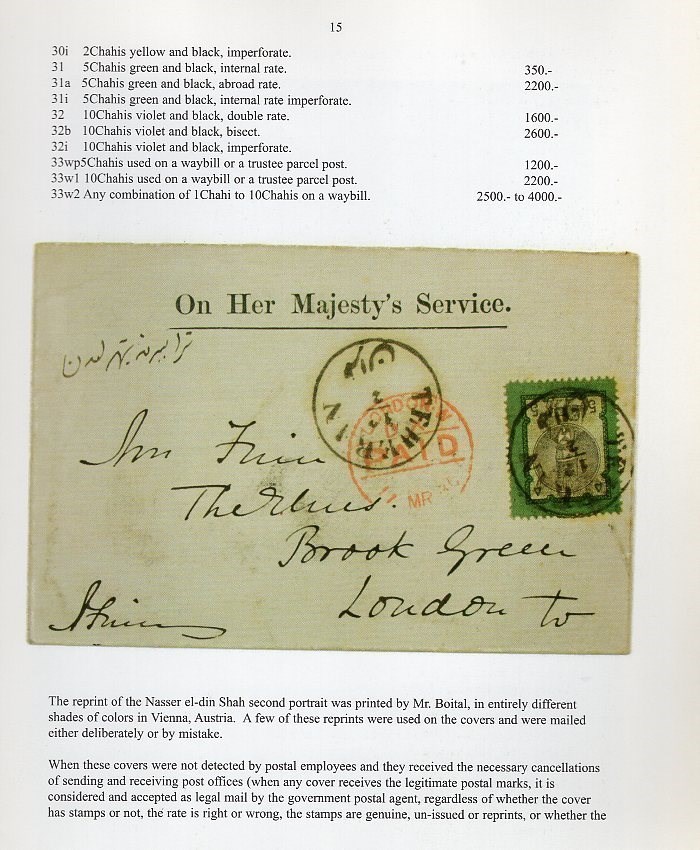 15
30i 2Chahis yellow and black, imperforate.
31 5Chahis green and black, internal rate. 350.-
31a 5Chahis green and black, abroad rate. 2200.-
31i 5Chahis green and black, internal rate imperforate.
32 10Chahis violet and black, double rate. 1600.-
32b 10Chahis violet and black, bisect. 2600.-
32i 10Chahis violet and black, imperforate.
33wp5Chahis used on a waybill or a trustee parcel post. 1200.-
33w1 10Chahis used on a waybill or a trustee parcel post. 2200.-
33w2 Any combination of 1Chahi to 10Chahis on a waybill. 2500.- to 4000.-
On Her Majesty's Service.
TEHERAN
LONDON
PAID
MR
Brook Green
London
The reprint of the Nasser el-din Shah second portrait was printed by Mr. Boital, in entirely different
shades of colors in Vienna, Austria. A few of these reprints were used on the covers and were mailed
either deliberately or by mistake.
When these covers were not detected by postal employees and they received the necessary cancellations
of sending and receiving post offices (when any cover receives the legitimate postal marks, it is
considered and accepted as legal mail by the government postal agent, regardless of whether the cover
has stamps or not, the rate is right or wrong, the stamps are genuine, un-issued or reprints, or whether the